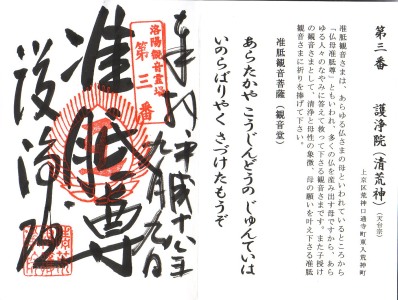 第三番　護浄院（清荒神）（天台宗）
上京区荒神口通寺町東入荒神町
准胝観音さまは、あらゆる仏さまの母といわれているところから
「仏母准胝尊」ともいわれ、多くの仏を産み出す母ですから、あら
ゆる人々のなやみに答えて救って下さる観音さまです。また子授け
の観音さまとして、清浄と母性の象徴、母の願いを叶え下さる准胝
観音さまに祈りを捧げて下さい。
准胝観音菩薩（観音堂）
あらたかやこうじんどうの じゅんていは
いのらばりやく さづけたもうぞ
奉拝 平成十八年
九月九日
洛陽観音霊場
第三番
准胝尊
護浄院